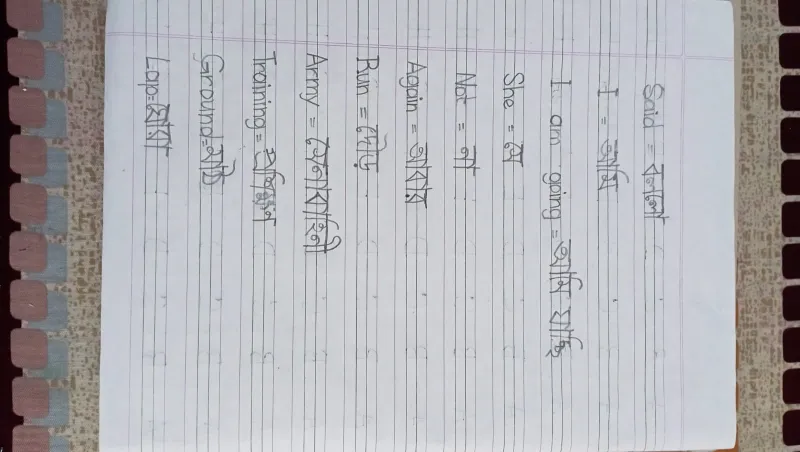 Said = বলল
I = আমি
I am going = আমি যাচ্ছি
She = সে
Not = না
Again = আবার
Run = দৌড়
Army = সেনাবাহিনী
Training = প্রশিক্ষণ
Ground = মাঠ